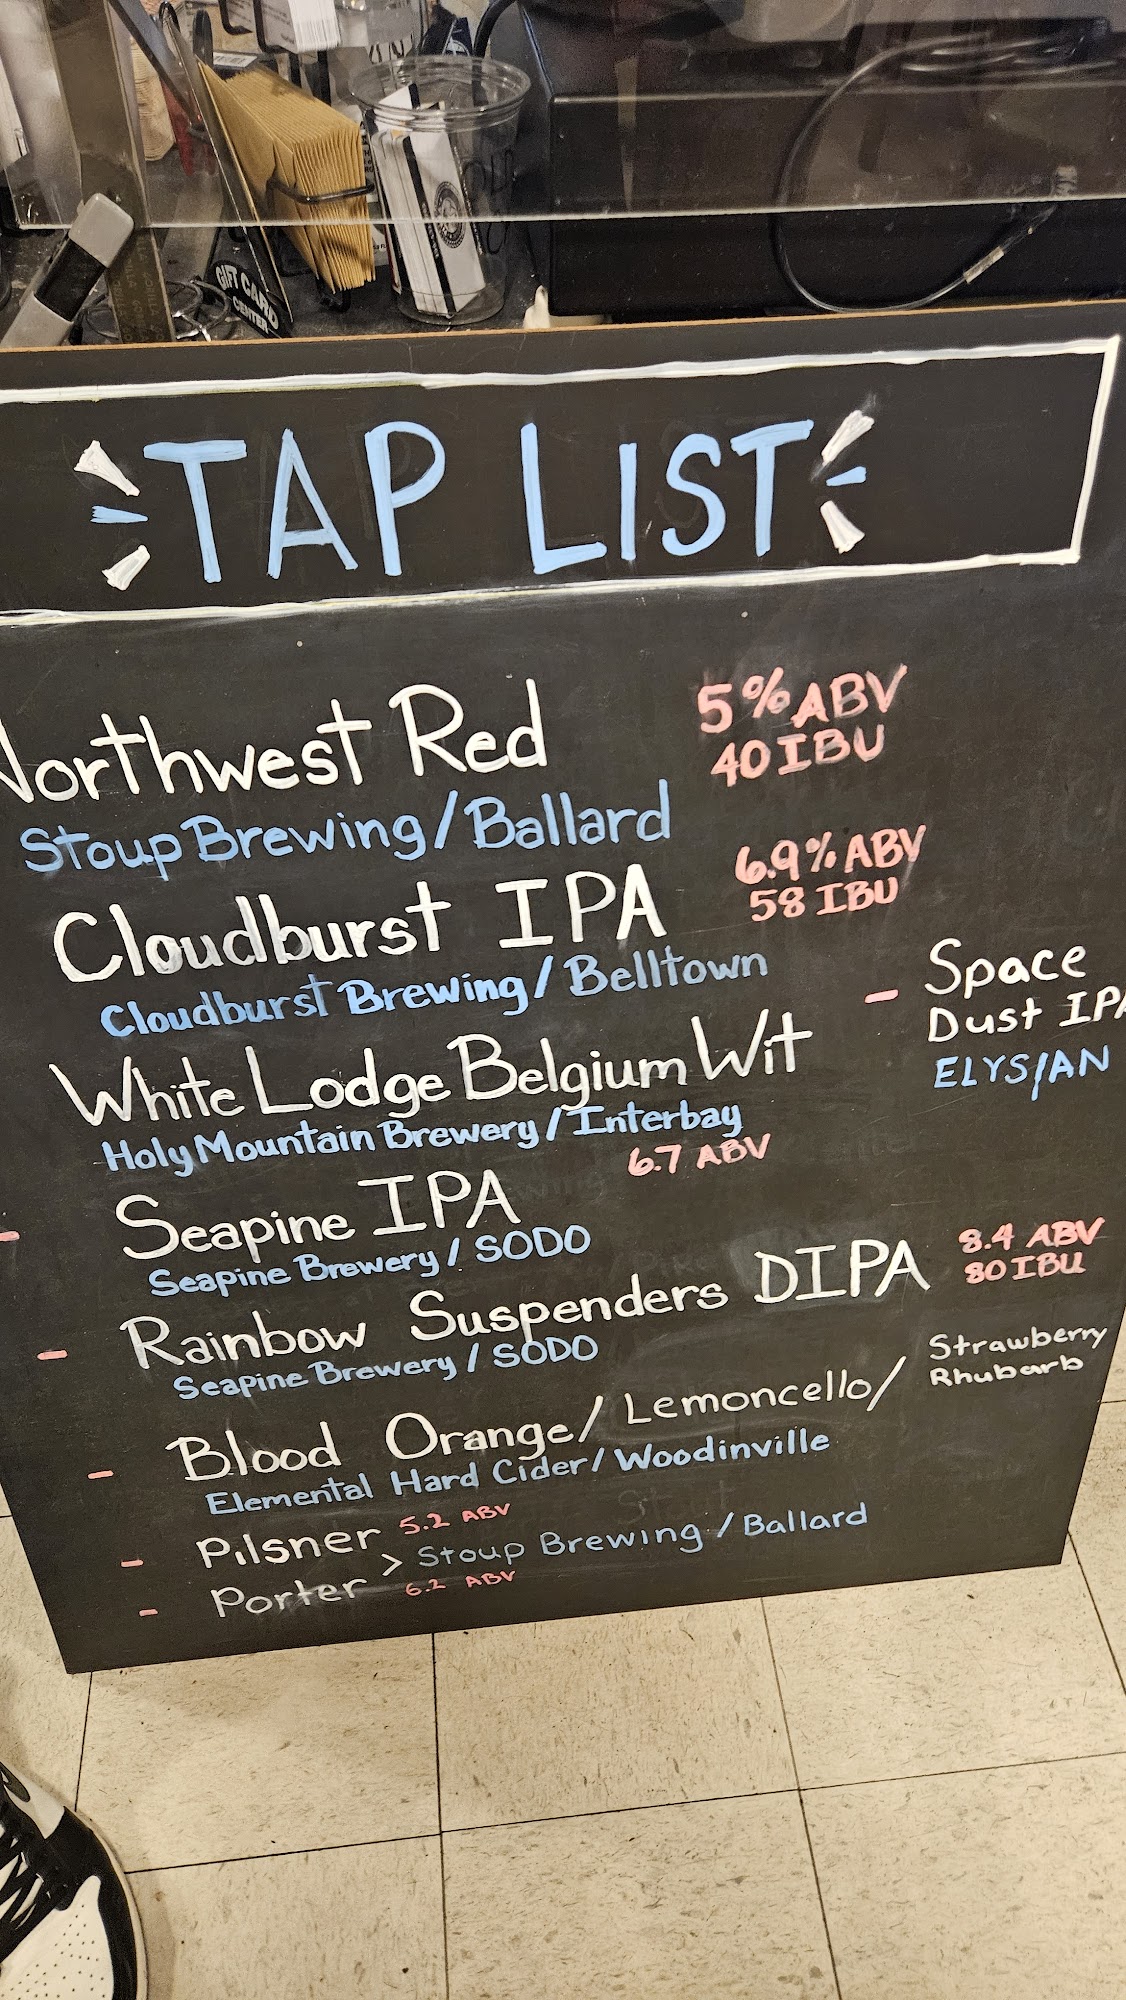 GIFT CARD
CENTER
TAP LIST
Northwest Red
5% ABV
40 IBU
Stoup Brewing/Ballard
Cloudburst IPA
6.9% ABV
58 IBU
Cloudburst Brewing/Belltown
- Space
Dust IPA
ELYSIAN
White Lodge Belgium Wit
Holy Mountain Brewery/Interbay
- Seapine IPA
6.7 ABV
Seapine Brewery/SODO
- Rainbow Suspenders DIPA
8.4 ABV
80 IBU
Seapine Brewery/SODO
- Blood Orange/Lemoncello/
Strawberry
Rhubarb
Elemental Hard Cider/Woodinville
- Pilsner 5.2 ABV
> Stoup Brewing/Ballard
- Porter 6.2 ABV